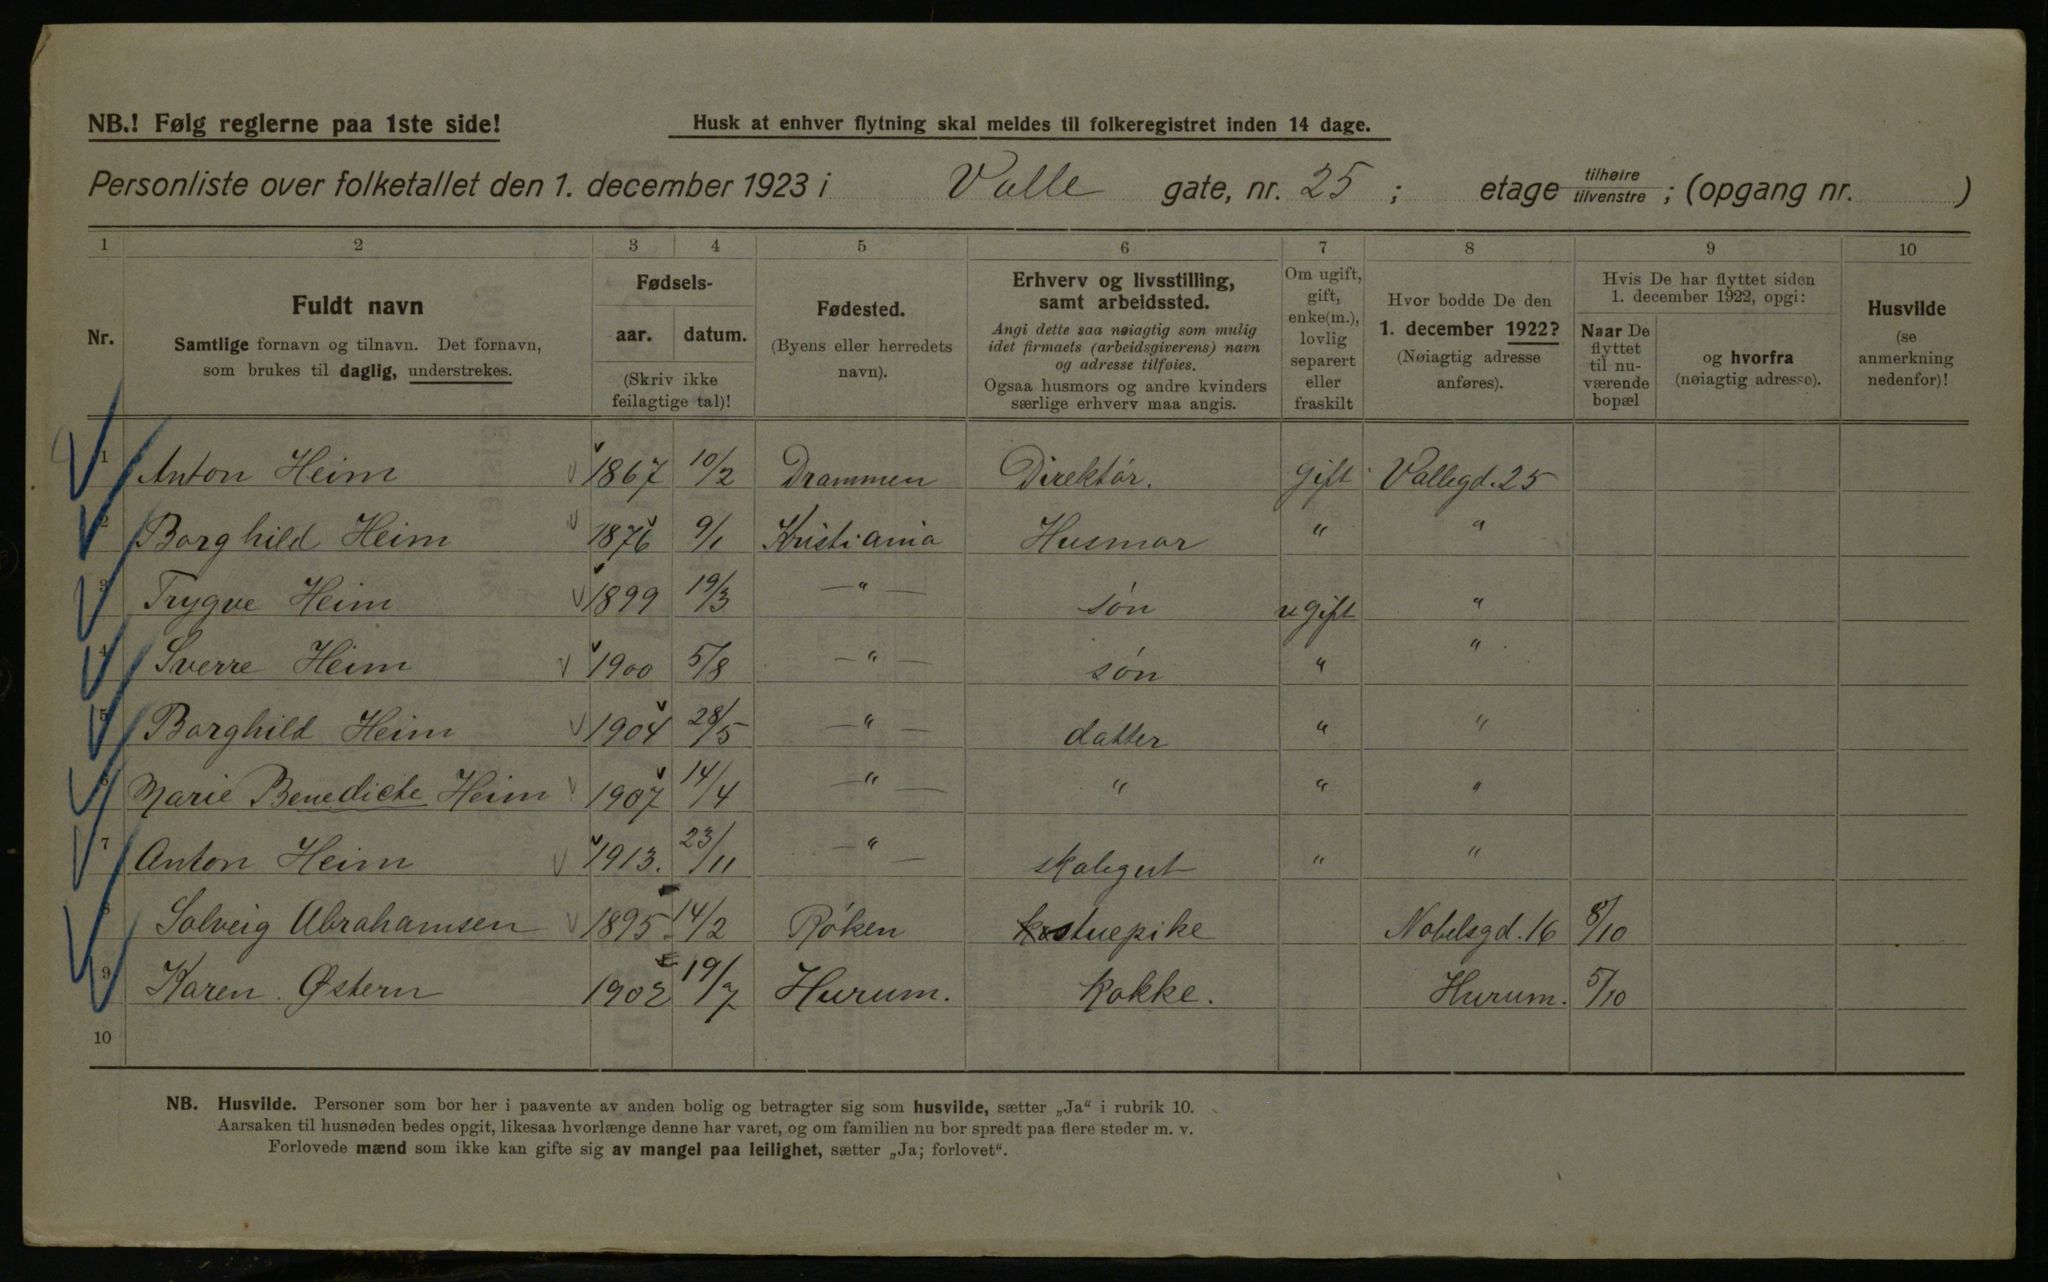 NB.! Følg reglerne paa 1ste side!
Husk at enhver flytning skal meldes til folkeregistret inden 14 dage.
Personliste over folketallet den 1. december 1923 i Valle gate, nr. 25 ; etage tilhøire tilvenstre ; (opgang nr. )
1 2 3 4 5 6 7 8 9 10
Nr.
Fuldt navn
Samtlige fornavn og tilnavn. Det fornavn,
som brukes til daglig, understrekes.
Fødsels-
aar. datum.
(Skriv ikke
feilagtige tal)!
Fødested.
(Byens eller herredets
navn).
Erhverv og livsstilling,
samt arbeidssted.
Angi dette saa nøiagtig som mulig
idet firmaets (arbeidsgiverens) navn
og adresse tilføies.
Ogsaa husmors og andre kvinders
særlige erhverv maa angis.
Om ugift,
gift,
enke(m.),
lovlig
separert
eller
fraskilt
Hvor bodde De den
1. december 1922?
(Nøiagtig adresse
anføres).
Hvis De har flyttet siden
1. december 1922, opgi:
Naar De
flyttet
til nu-
værende
bopæl
og hvorfra
(nøiagtig adresse).
Husvilde
(se
anmerkning
nedenfor)!
1 Anton Heim 1867 10/2 Drammen Direktór. gift Vallegd. 25
2 Borghild Heim 1876 9/1 Kristiania Husmor " "
3 Trygve Heim 1899 19/3 —"— søn ugift "
4 Sverre Heim 1900 5/8 —"— søn " "
5 Borghild Heim 1904 28/5 —"— datter " "
6 Marie Benedicte Heim 1907 14/4 —"— " " "
7 Anton Heim 1913. 23/11 —"— skolegut " "
8 Solveig Abrahamsen 1895 14/2 Róken stuepike Nobelsgd. 16 8/10
9 Karen Østern 1902 19/7 Hurum. Kokke. Hurum. 5/10
10
NB. Husvilde. Personer som bor her i paavente av anden bolig og betragter sig som husvilde, sætter „Ja“ i rubrik 10.
Aarsaken til husnøden bedes opgit, likesaa hvorlænge denne har varet, og om familien nu bor spredt paa flere steder m. v.
Forlovede mænd som ikke kan gifte sig av mangel paa leilighet, sætter „Ja; forlovet“.